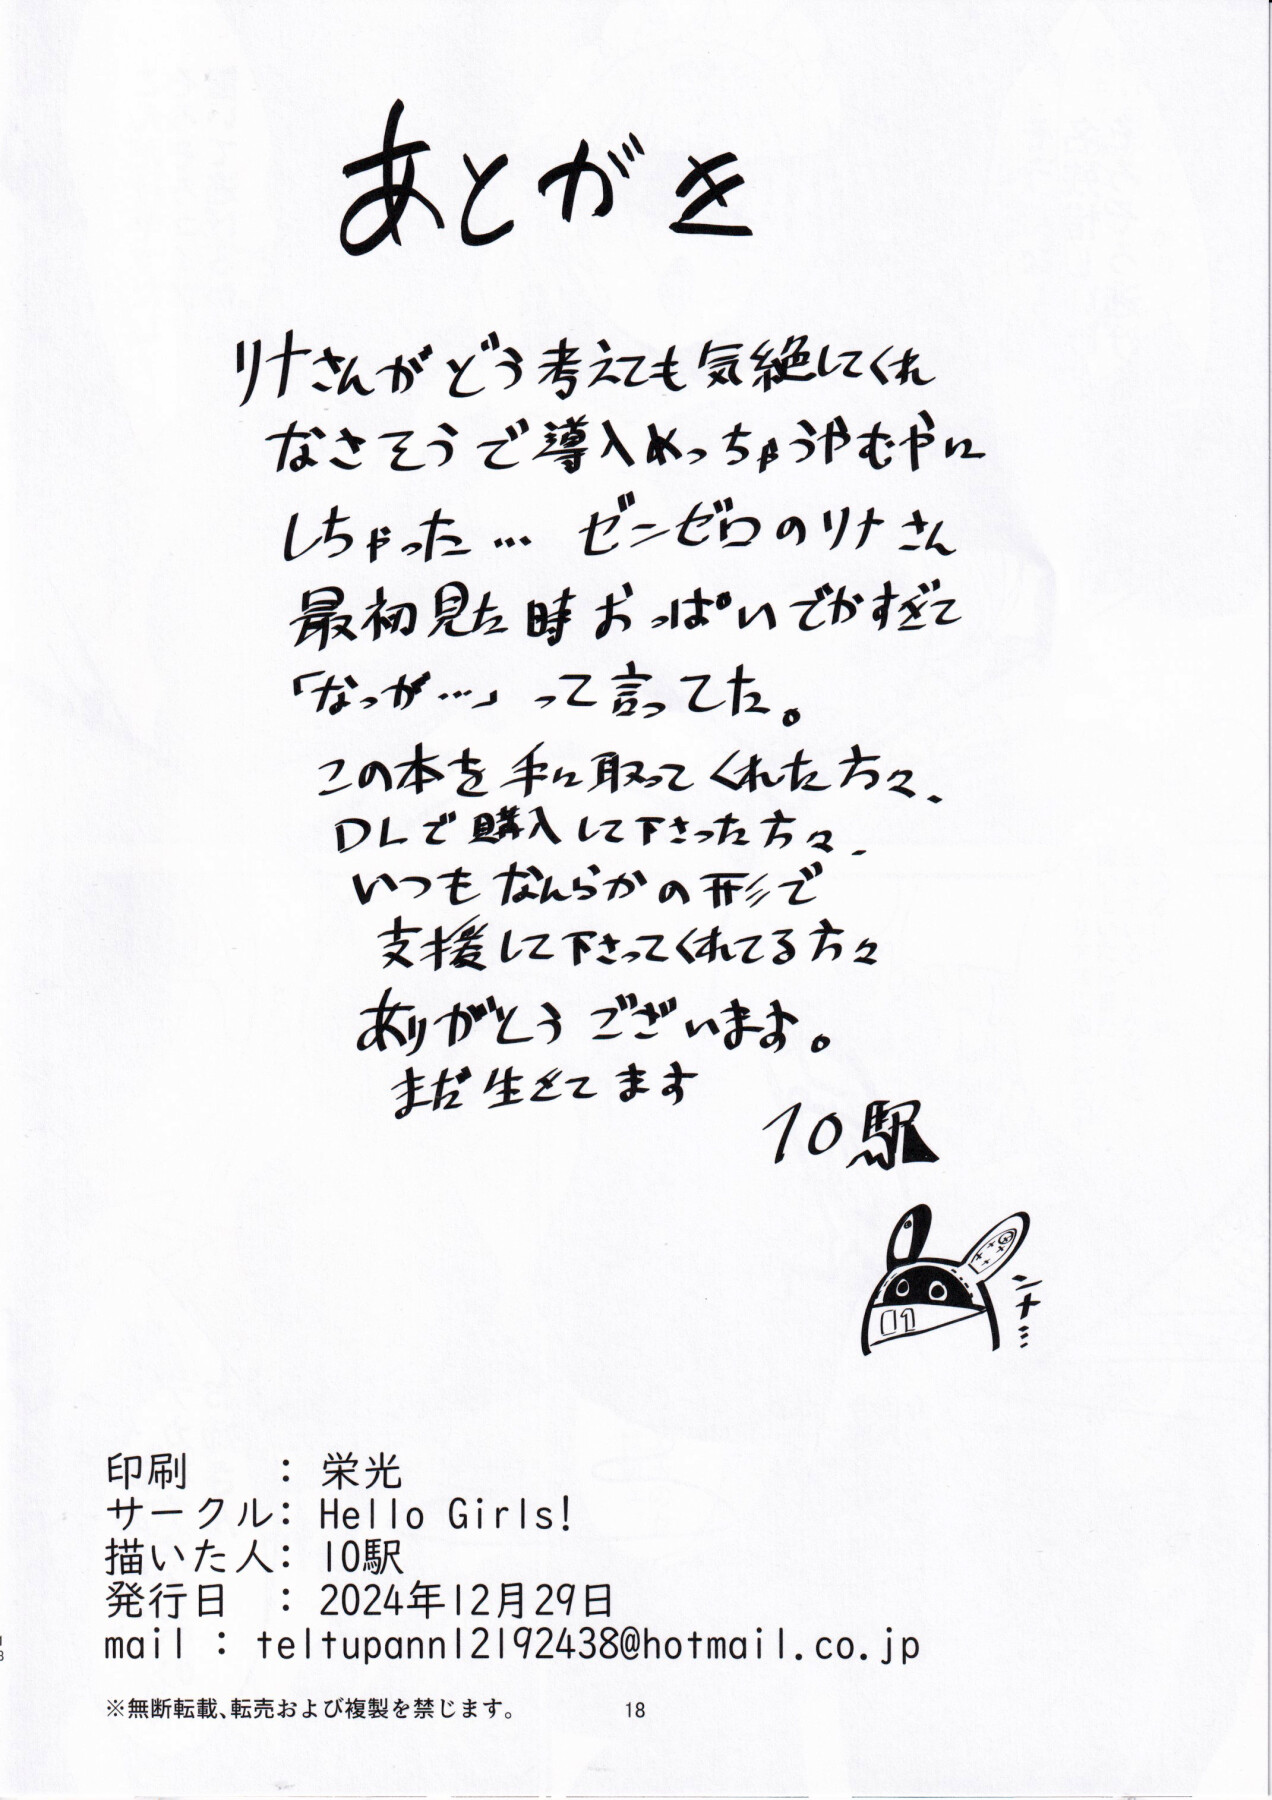 あとがき
リナさんがどう考えても気絶してくれ
なさそうで導入めっちゃうやむやに
しちゃった… ゼンゼロのリナさん
最初見た時おっぱいでかすぎて
「なっが…」って言ってた。
この本を手に取ってくれた方々、
DLで購入して下さった方々、
いつもなんらかの形で
支援して下さってくれてる方々
ありがとうございます。
まだ生きてます
10駅
01
ンナ…
印刷 : 栄光
サークル: Hello Girls!
描いた人: 10駅
発行日 : 2024年12月29日
mail : teltupann12192438@hotmail.co.jp
※無断転載、転売および複製を禁じます。
18